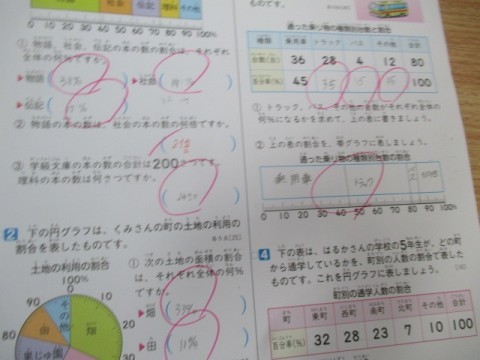 社会 伝記 理科 その他
① 物語，社会，伝記の本の数の割合は，それぞれ
全体の何％ですか。
▶物語( ▶社会(
▶伝記( %
② 物語の本の数は，社会の本の数の何倍ですか。
2倍
③ 学級文庫の本の数の合計は200さつです。
理科の本の数は何さつですか。
2 下の円グラフは，くみさんの町の土地の利用の
割合を表したものです。
土地の利用の割合
① 次の土地の面積の割合
は，それぞれ全体の何％
ですか。
100%
90 10
80 20
その他
田 畑
果じゅ園
▶畑(
▶田( 11%
ものです。
通った乗り物の種類別台数と割合
種類 乗用車 トラック バス その他 合計
台数(台) 36 28 4 12 80
百分率(%) 45 35 5 15 100
① トラック，バス，その他の台数がそれぞれ全体の
何％になるかを求めて，上の表に書きましょう。
② 上の表の割合を，帯グラフに表しましょう。
通った乗り物の種類別台数の割合
乗用車 トラック バス その他
0 10 20 30 40 50 60 70 80 90 100%
4 下の表は，はるかさんの学校の5年生が，どの町
から通学しているかを，町別の人数の割合で表した
ものです。これを円グラフに表しましょう。
町別の通学人数の割合
町 東町 西町 南町 北町 その他 合計
百分率(%) 32 28 23 7 10 100